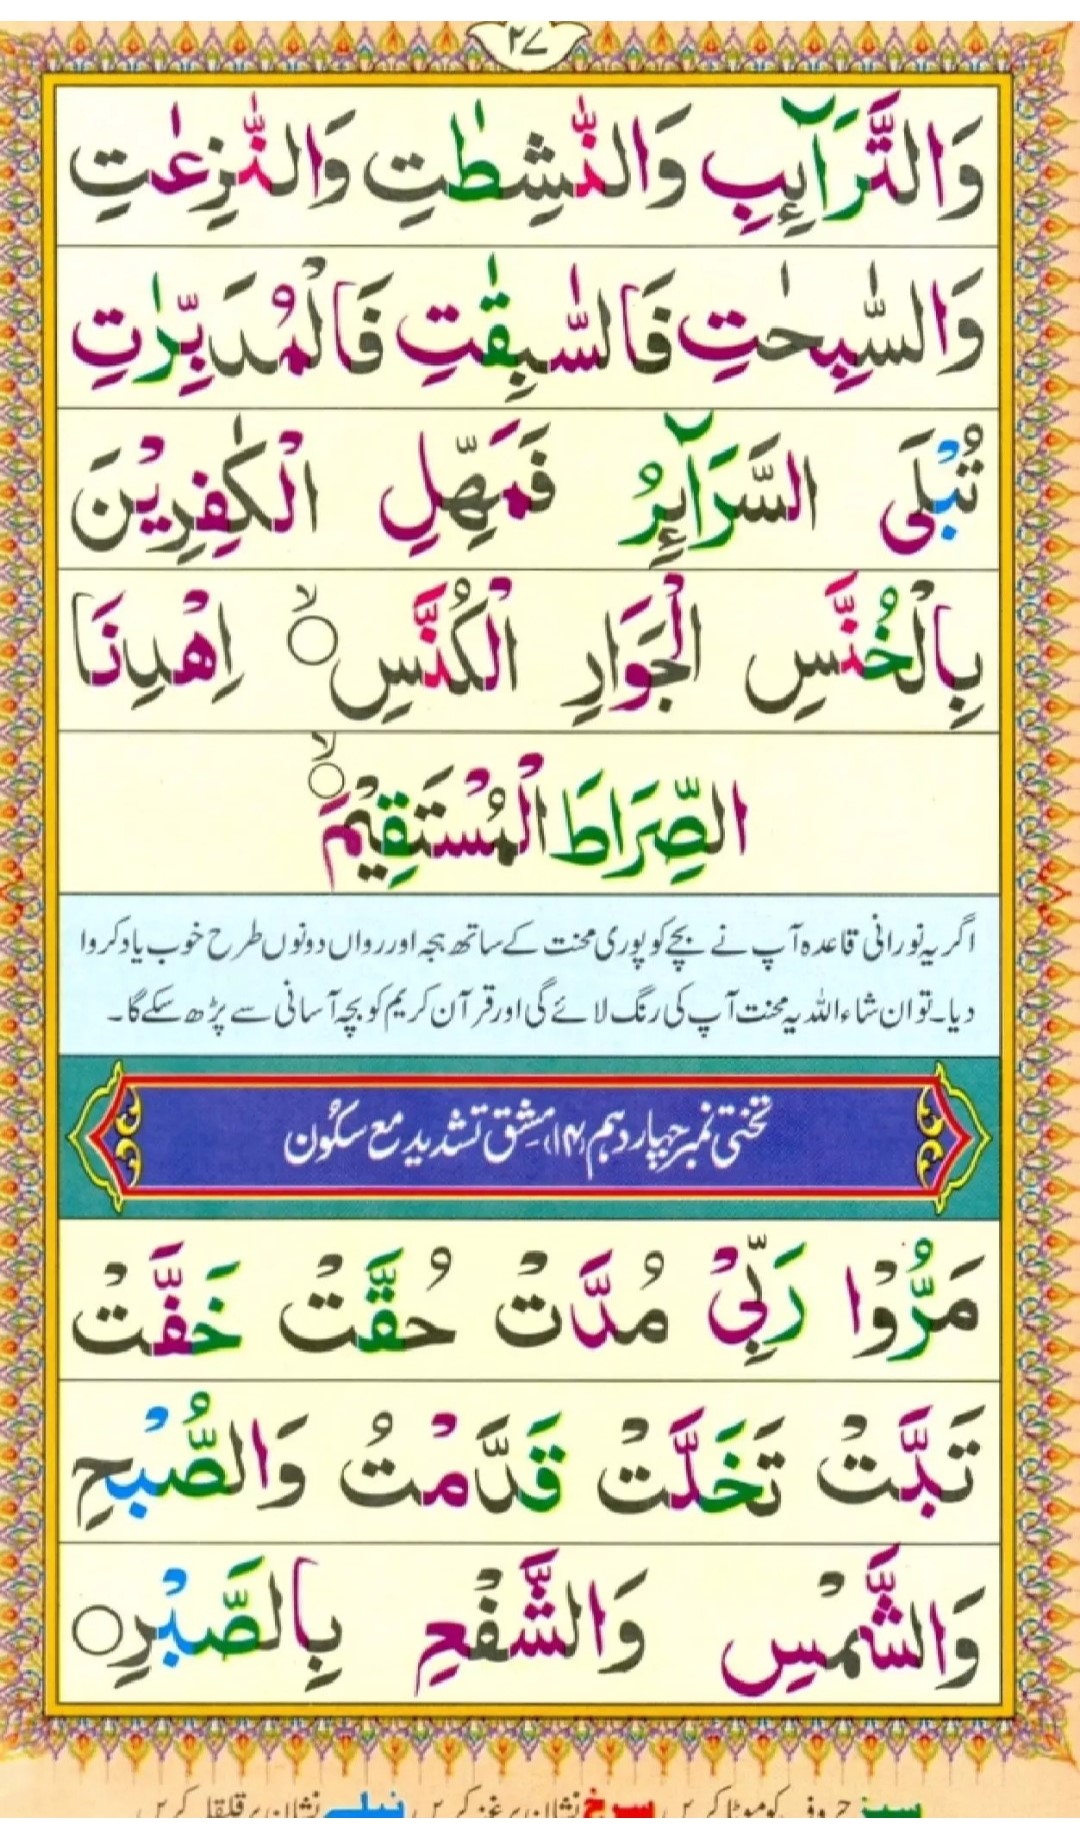 ۲۷
وَالتَّرَآئِبِ وَالنّٰشِطٰتِ وَالنّٰزِعٰتِ
وَالسّٰبِحٰتِ فَالسّٰبِقٰتِ فَالْمُدَبِّرٰتِ
تُبْلَى السَّرَآئِرُ فَمَهِّلِ الْكٰفِرِيْنَ
بِالْخُنَّسِ الْجَوَارِ الْكُنَّسِ ۙ اِهْدِنَا
الصِّرَاطَ الْمُسْتَقِيْمَ ۙ
اگر یہ نورانی قاعدہ آپ نے بچے کو پوری محنت کے ساتھ ہجہ اور رواں دونوں طرح خوب یاد کروا
دیا۔ تو ان شاء اللہ یہ محنت آپ کی رنگ لائے گی اور قرآن کریم کو بچہ آسانی سے پڑھ سکے گا۔
تختی نمبر چہاردہم (۱۴) مشق تشدید مع سکُون
مَرُّوْا رَبِّیْ مُدَّتْ حُقَّتْ خَفَّتْ
تَبَّتْ تَخَلَّتْ قَدَّمْتُ وَالصُّبْحِ
وَالشَّمْسِ وَالشَّفْعِ بِالصَّبْرِ ○
سبز حروف کو موٹا کریں سرخ نشان پر غنہ کریں نیلے نشان پر قلقلہ کریں